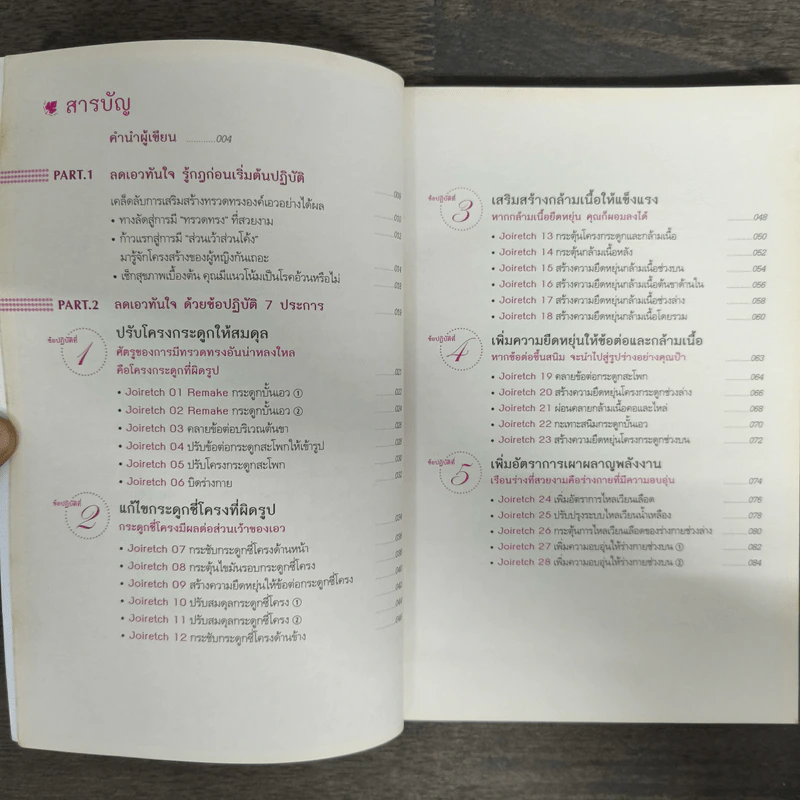 สารบัญ
คำนำผู้เขียน ............004
PART.1 ลดเอวทันใจ รู้กฎก่อนเริ่มต้นปฏิบัติ
เคล็ดลับการเสริมสร้างทรวดทรงองค์เอวอย่างได้ผล
• ทางลัดสู่การมี "ทรวดทรง" ที่สวยงาม
• ก้าวแรกสู่การมี "ส่วนเว้าส่วนโค้ง"
มารู้จักโครงสร้างของผู้หญิงกันเถอะ
• เช็กสุขภาพเบื้องต้น คุณมีแนวโน้มเป็นโรคอ้วนหรือไม่
PART.2 ลดเอวทันใจ ด้วยข้อปฏิบัติ 7 ประการ
ข้อปฏิบัติที่ 1 ปรับโครงกระดูกให้สมดุล
ศัตรูของการมีทรวดทรงอันน่าหลงใหล
คือโครงกระดูกที่ผิดรูป
• Joiretch 01 Remake กระดูกบั้นเอว ①
• Joiretch 02 Remake กระดูกบั้นเอว ②
• Joiretch 03 คลายข้อต่อบริเวณต้นขา
• Joiretch 04 ปรับข้อต่อกระดูกสะโพกให้เข้ารูป
• Joiretch 05 ปรับโครงกระดูกสะโพก
• Joiretch 06 บิดร่างกาย
ข้อปฏิบัติที่ 2 แก้ไขกระดูกซี่โครงที่ผิดรูป
กระดูกซี่โครงมีผลต่อส่วนเว้าของเอว
• Joiretch 07 กระชับกระดูกซี่โครงด้านหน้า
• Joiretch 08 กระตุ้นไขมันรอบกระดูกซี่โครง
• Joiretch 09 สร้างความยืดหยุ่นให้ข้อต่อกระดูกซี่โครง
• Joiretch 10 ปรับสมดุลกระดูกซี่โครง ①
• Joiretch 11 ปรับสมดุลกระดูกซี่โครง ②
• Joiretch 12 กระชับกระดูกซี่โครงด้านข้าง
ข้อปฏิบัติที่ 3 เสริมสร้างกล้ามเนื้อให้แข็งแรง
หากกล้ามเนื้อยืดหยุ่น คุณก็ผอมลงได้ 048
• Joiretch 13 กระตุ้นโครงกระดูกและกล้ามเนื้อ 050
• Joiretch 14 กระตุ้นกล้ามเนื้อหลัง 052
• Joiretch 15 สร้างความยืดหยุ่นกล้ามเนื้อช่วงบน 054
• Joiretch 16 สร้างความยืดหยุ่นกล้ามเนื้อต้นขาด้านใน 056
• Joiretch 17 สร้างความยืดหยุ่นกล้ามเนื้อช่วงล่าง 058
• Joiretch 18 สร้างความยืดหยุ่นกล้ามเนื้อโดยรวม 060
ข้อปฏิบัติที่ 4 เพิ่มความยืดหยุ่นให้ข้อต่อและกล้ามเนื้อ
หากข้อต่อขึ้นสนิม จะนำไปสู่รูปร่างอย่างคุณป้า 063
• Joiretch 19 คลายข้อต่อกระดูกสะโพก 064
• Joiretch 20 สร้างความยืดหยุ่นโครงกระดูกช่วงล่าง 066
• Joiretch 21 ผ่อนคลายกล้ามเนื้อคอและไหล่ 068
• Joiretch 22 กะเทาะสนิมกระดูกบั้นเอว 070
• Joiretch 23 สร้างความยืดหยุ่นโครงกระดูกช่วงบน 072
ข้อปฏิบัติที่ 5 เพิ่มอัตราการเผาผลาญพลังงาน
เรือนร่างที่สวยงามคือร่างกายที่มีความอบอุ่น 074
• Joiretch 24 เพิ่มอัตราการไหลเวียนเลือด 076
• Joiretch 25 ปรับปรุงระบบไหลเวียนน้ำเหลือง 078
• Joiretch 26 กระตุ้นการไหลเวียนเลือดของร่างกายช่วงล่าง 080
• Joiretch 27 เพิ่มความอบอุ่นให้ร่างกายช่วงบน ① 082
• Joiretch 28 เพิ่มความอบอุ่นให้ร่างกายช่วงบน ② 084